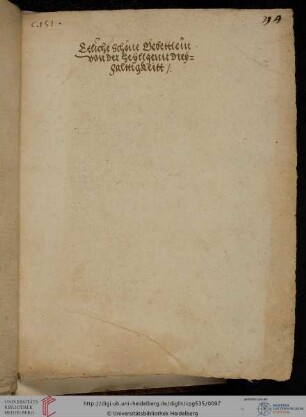 C.151.
Etliche schöne Gebettlein
von der Heyligenn Drey-
faltigkeitt /.
UNIVERSITÄTS-
BIBLIOTHEK
HEIDELBERG
http://digi.ub.uni-heidelberg.de/diglit/cpg535/0097
© Universitätsbibliothek Heidelberg